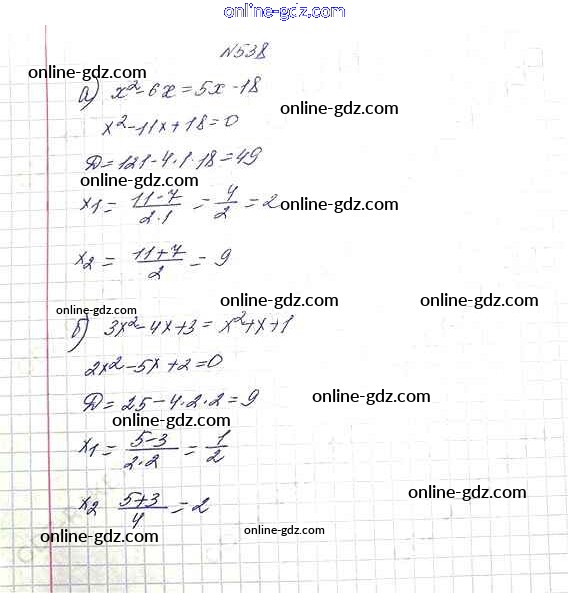 online-gdz.com
№538
online-gdz.com
а) x² - 6x = 5x - 18
online-gdz.com
x² - 11x + 18 = 0
Д = 121 - 4·1·18 = 49
online-gdz.com
x1 = (11-7)/(2·1) = 4/2 = 2
online-gdz.com
x2 = (11+7)/2 = 9
online-gdz.com online-gdz.com online-gdz.com
б) 3x² - 4x + 3 = x² + x + 1
2x² - 5x + 2 = 0
Д = 25 - 4·2·2 = 9
online-gdz.com
online-gdz.com
x1 = (5-3)/(2·2) = 1/2
online-gdz.com
x2 (5+3)/4 = 2
online-gdz.com online-gdz.com